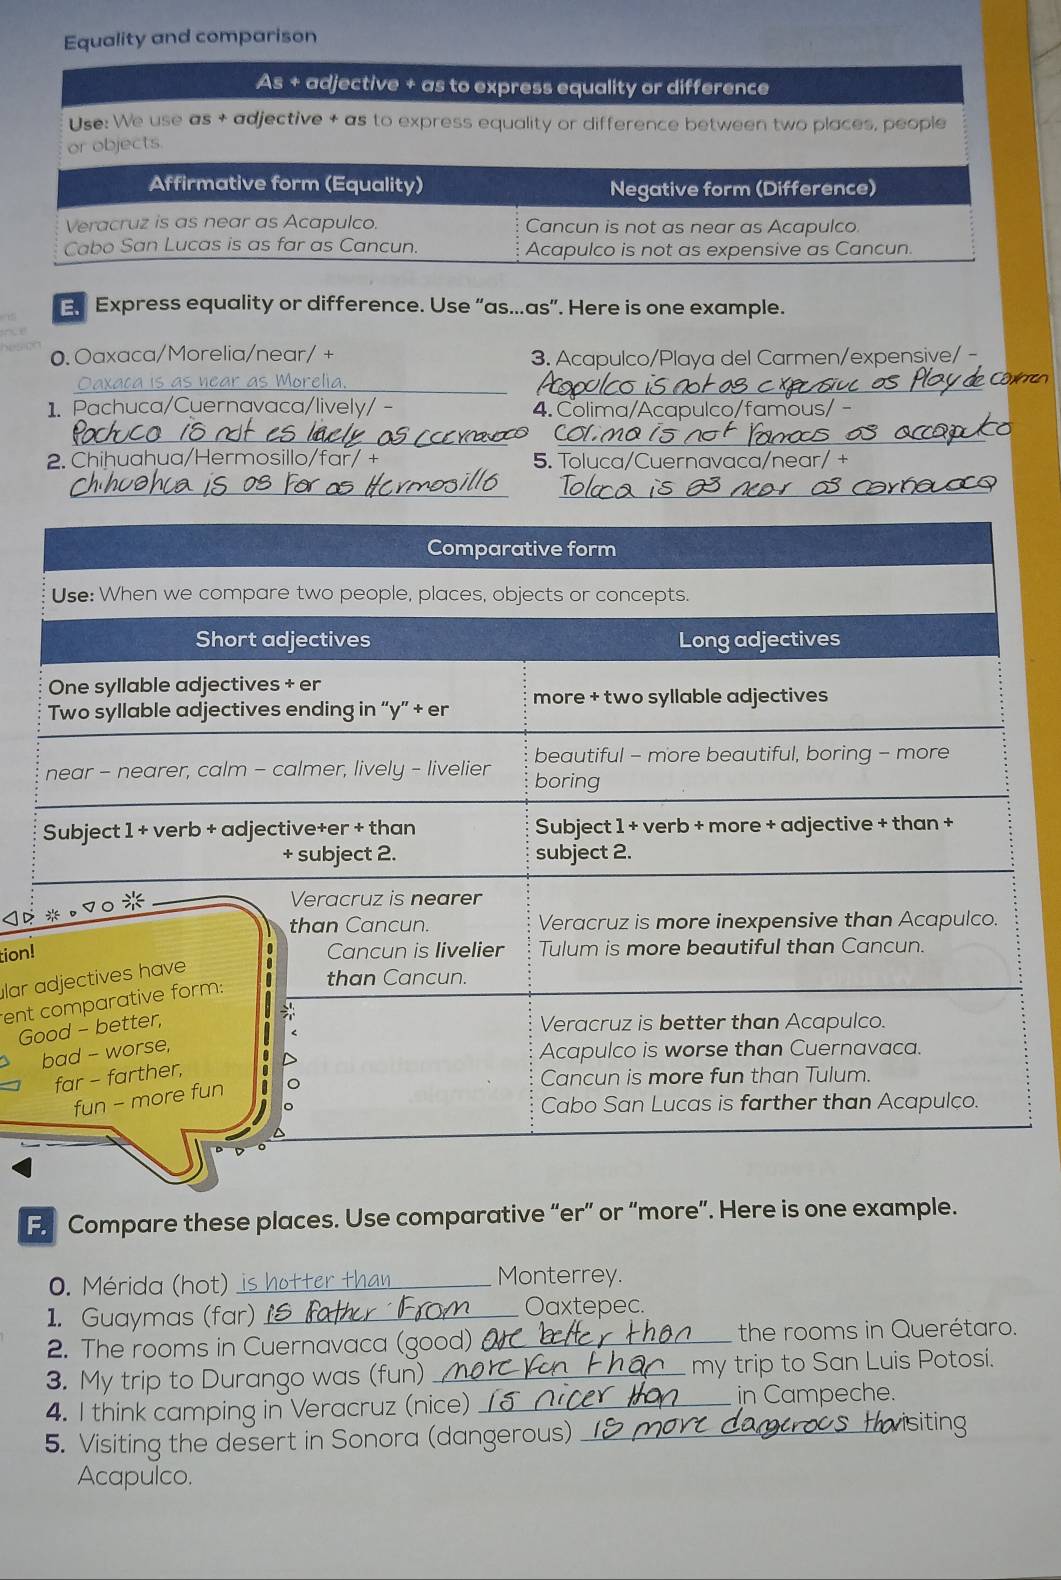 Equality and comparison
As + adjective + as to express equality or difference
Use: We use as + adjective + as to express equality or difference between two places, people
or objects.
Affirmative form (Equality)
Negative form (Difference)
Veracruz is as near as Acapulco.
Cancun is not as near as Acapulco.
Cabo San Lucas is as far as Cancun.
Acapulco is not as expensive as Cancun.
E. Express equality or difference. Use "as...as". Here is one example.
0. Oaxaca/Morelia/near/ +
Oaxaca is as near as Morelia.
1. Pachuca/Cuernavaca/lively/ -
Pachuca is not es lively as
2. Chihuahua/Hermosillo/far/ +
Chihuahua is as far as Hermosillo
3. Acapulco/Playa del Carmen/expensive/ -
Acapulco is not as expensive as Play de
4. Colima/Acapulco/famous/ -
Colima is not as
5. Toluca/Cuernavaca/near/ +
Toloca is as near as
Comparative form
Use: When we compare two people, places, objects or concepts.
Short adjectives
Long adjectives
One syllable adjectives + er
Two syllable adjectives ending in "y" + er
more + two syllable adjectives
near - nearer, calm - calmer, lively - livelier
beautiful - more beautiful, boring - more
boring
Subject 1 + verb + adjective+er + than
+ subject 2.
Subject 1 + verb + more + adjective + than +
subject 2.
Veracruz is nearer
than Cancun.
Cancun is livelier
than Cancun.
Veracruz is more inexpensive than Acapulco.
Tulum is more beautiful than Cancun.
tion!
ular adjectives have
rent comparative form:
Good - better,
bad - worse,
far - farther,
fun - more fun
Veracruz is better than Acapulco.
Acapulco is worse than Cuernavaca.
Cancun is more fun than Tulum.
Cabo San Lucas is farther than Acapulco.
F. Compare these places. Use comparative "er" or "more". Here is one example.
0. Mérida (hot) is hotter than Monterrey.
1. Guaymas (far) is father from Oaxtepec.
2. The rooms in Cuernavaca (good) are better than the rooms in Querétaro.
3. My trip to Durango was (fun) more fun than my trip to San Luis Potosí.
4. I think camping in Veracruz (nice) is nicer than in Campeche.
5. Visiting the desert in Sonora (dangerous) is more dangerous than visiting
Acapulco.